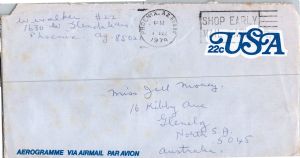 W. Walker #22
1630 W
Phoenix, Az 8502
PHOENIX, ARIZONA
PM
1976
SHOP EARLY
22c USA
Miss Jill Money
16 Kibby Ave
Glenelg
North S.A.
5045
Australia
AEROGRAMME VIA AIRMAIL PAR AVION